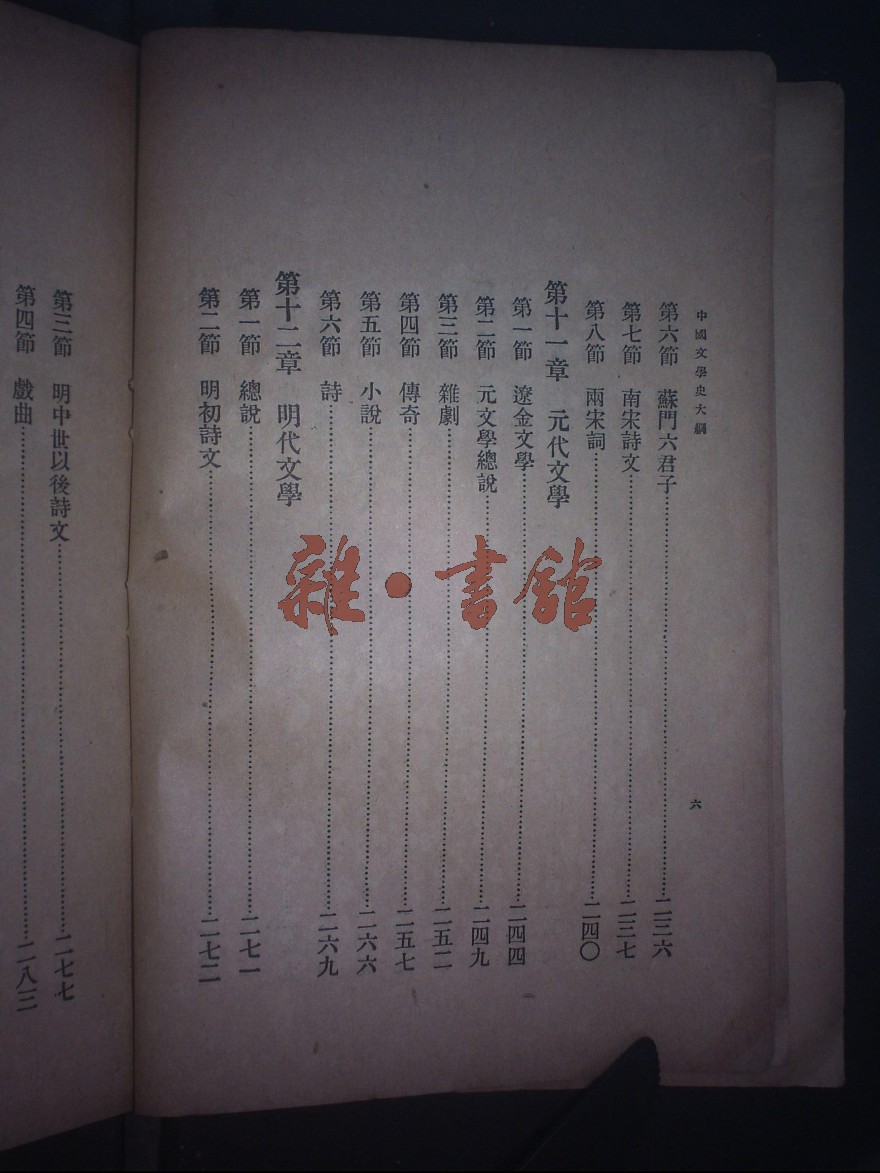 中國文學史大綱
六
第六節 蘇門六君子……二三六
第七節 南宋詩文……二三七
第八節 兩宋詞……二四〇
第十一章 元代文學
第一節 遼金文學……二四四
第二節 元文學總說……二四九
第三節 雜劇……二五二
第四節 傳奇……二五七
第五節 小說……二六六
第六節 詩……二六九
第十二章 明代文學
第一節 總說……二七一
第二節 明初詩文……二七二
第三節 明中世以後詩文……二七七
第四節 戲曲……二八三
雜·書館